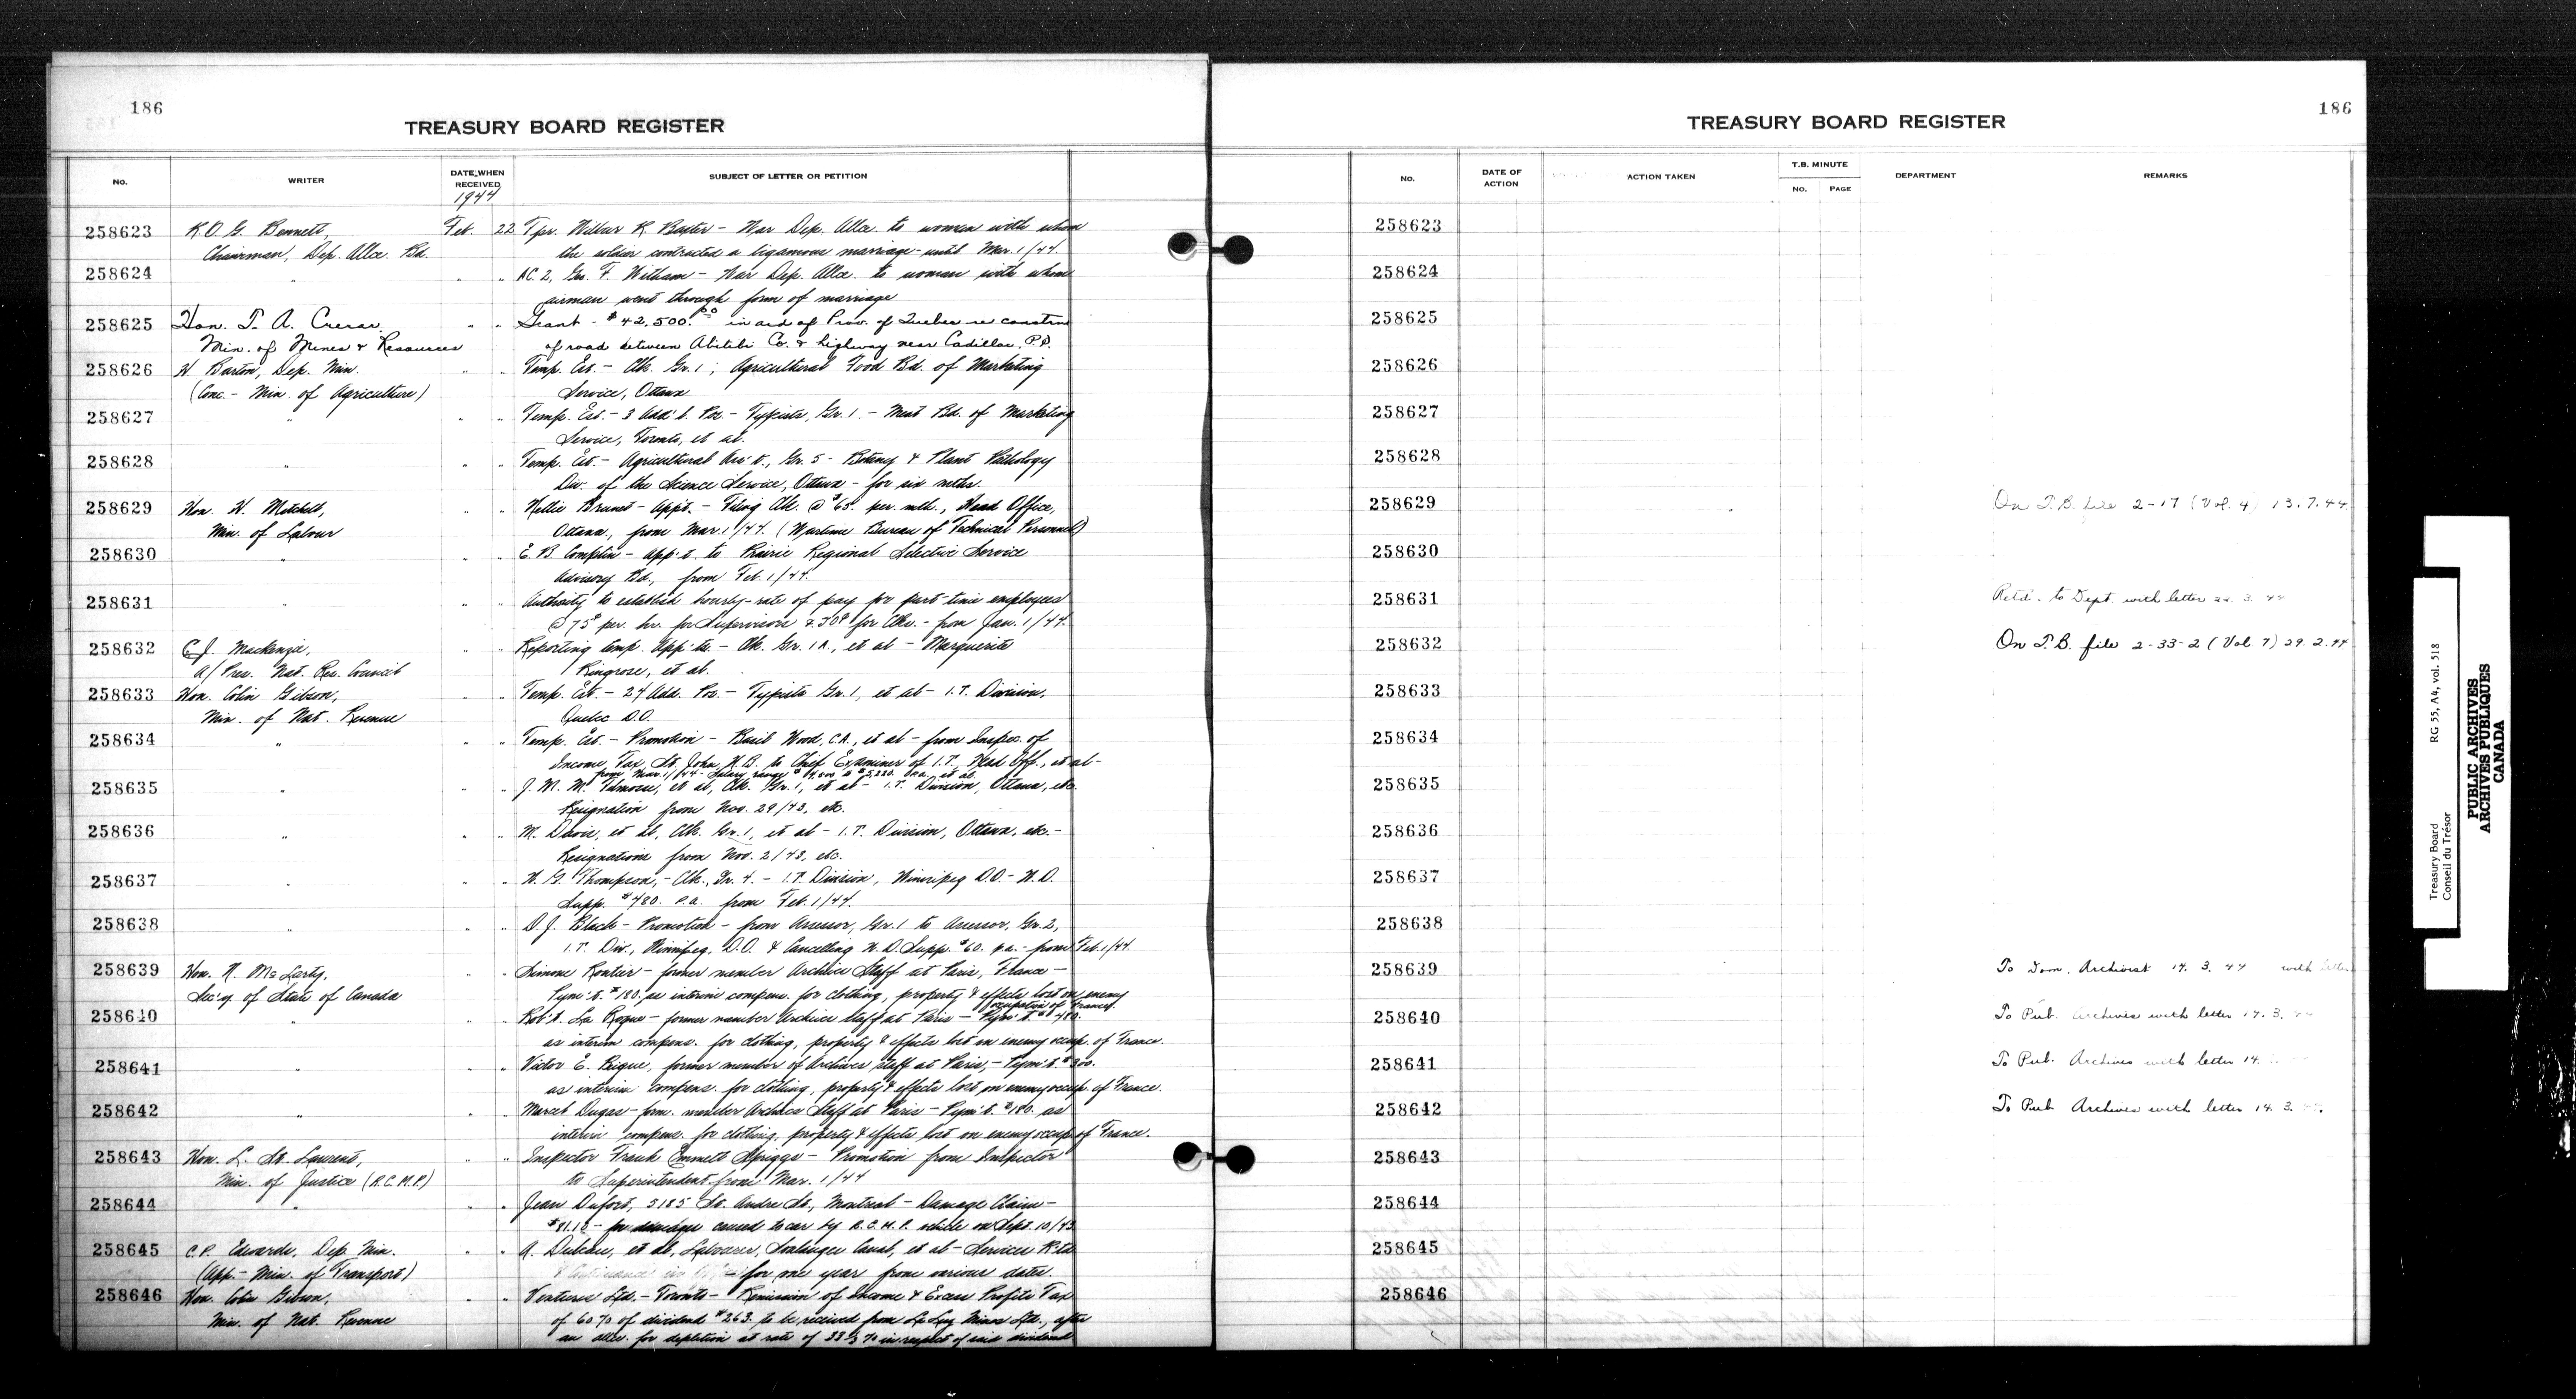 186
TREASURY BOARD REGISTER
NO.
WRITER
DATE WHEN RECEIVED
1944
SUBJECT OF LETTER OR PETITION
258623 R.O.G. Bennett, Feb. 22 Tpr. Wilbur R. Baxter - War Dep. Allce. to woman with whom
Chairman, Dep. Allce. Bd. the soldier contracted a bigamous marriage - until Mar. 1/44.
258624 " " " AC 2, Geo. F. Witham - War Dep. Allce. to woman with whom
airman went through form of marriage
258625 Hon. T. A. Crerar " " Grant - $42,500.00 in aid of Prov. of Quebec re constrn
Min. of Mines & Resources of road between Abitibi Co. & highway near Cadillac, P.Q.
258626 H. Barton, Dep. Min. " " Temp. Est. - Clk. Gr. 1; Agricultural Food Bd. of Marketing
(Conc. - Min. of Agriculture) Service, Ottawa
258627 " " " Temp. Est. - 3 Add'l. Pos. - Typists, Gr. 1 - Meat Bd. of Marketing
Service, Toronto, et al.
258628 " " " Temp. Est. - Agricultural Ass't., Gr. 5 - Botany & Plant Pathology
Div. of the Science Service, Ottawa - for six mths.
258629 Hon. H. Mitchell, " " Nellie Brunet - App't. - Filing Clk. @ $65. per. mth., Head Office,
Min. of Labour Ottawa, from Mar. 1/44. (Wartime Bureau of Technical Personnel)
258630 " " " E. B. Complin - App't. to Prairie Regional Selective Service
Advisory Bd., from Feb. 1/44.
258631 " " " Authority to establish hourly-rate of pay for part-time employees
@ 75¢ per. hr. for Supervisors & 50¢ for Clks. - from Jan. 1/44.
258632 C. J. Mackenzie, " " Reporting temp. App'ts. - Clk. Gr. 1A, et al - Marguerite
A/Pres. Nat. Res. Council Ringrose, et al.
258633 Hon. Colin Gibson, " " Temp. Est. - 24 Add. Pos. - Typists Gr. 1, et al - I.T. Division,
Min. of Nat. Revenue Quebec D.O.
258634 " " " Temp. Est. - Promotion - Basil Wood, C.A., et al - from Inspec. of
Income Tax, St. John, N.B. to Chief Examiner of I.T., Head Off., et al -
from Mar. 1/44 - Salary range
258635 " " " J. M. M. et al, Clk. Gr. 1, et al - I.T. Division, Ottawa, etc.
Resignation from Nov. 29/43, etc.
258636 " " " M. Davis, et al, Clk. Gr. 1, et al - I.T. Division, Ottawa, etc. -
Resignations from Nov. 2/43, etc.
258637 " " " H. G. Thompson, - Clk., Gr. 4. - I.T. Division, Winnipeg D.O. - W.D.
Supp. $480. p.a. from Feb. 1/44.
258638 " " D. J. Black - Promotion - from Assessor, Gr. 1 to Assessor, Gr. 2,
I.T. Div., Winnipeg, D.O. & Cancelling W.D. Supp. $60. p.a. - from Feb. 1/44.
258639 Hon. N. McLarty, " Simone Routier - former member Archives Staff at Paris, France -
Sec'y. of State of Canada Pym't. $180. as interim compens. for clothing, property & effects lost on enemy
occupation of France.
258640 " " " Rob't. La Roque - former member Archives Staff at Paris - Pym't. $480.
as interim compens. for clothing, property & effects lost on enemy occup. of France.
258641 " " " Victor E. former member of Archives Staff at Paris, - Pym't. $300.
as interim compens. for clothing, property & effects lost on enemy occup. of France.
258642 " " " Marcel Dugas - form. member Archives Staff at Paris - Pym't. $180. as
interim compens. for clothing, property & effects lost on enemy occup. of France.
258643 Hon. L. St. Laurent, " " Inspector Frank Emmett Spriggs - Promotion from Inspector
Min. of Justice (R.C.M.P.) to Superintendent from Mar. 1/44
258644 " " " Jean Dufort, 5185 St. Andre St., Montreal - Damage Claim -
$81.10 - for damages caused to car by R.C.M.P. vehicle on Sept. 10/43.
258645 C. P. Edwards, Dep. Min. " " A. et al, Labourer, Soulanges Canal, et al - Services
(App. - Min. of Transport) for one year from various dates.
258646 Hon. Colin Gibson, " Ventures Ltd. - Toronto - Remission of Income & Excess Profits Tax
Min. of Nat. Revenue of 60% of dividend $263. to be received from La Luz Mines Ltd., after
an allce. for depletion at rate of 33⅓% in respect of said dividend
186
TREASURY BOARD REGISTER
NO.
DATE OF ACTION
ACTION TAKEN
T.B. MINUTE
NO.
PAGE
DEPARTMENT
REMARKS
258623
258624
258625
258626
258627
258628
258629 On T.B. file 2-17 (Vol. 4) 13.7.44.
258630
258631 Retd. to Dept. with letter 22. 3. 44
258632 On T.B. file 2-33-2 (Vol. 7) 29.2.44.
258633
258634
258635
258636
258637
258638
258639 To Dom. Archivist 14. 3. 44 with letter
258640 To Pub. Archives with letter 14. 3. 44
258641 To Pub. Archives with letter 14.
258642 To Pub. Archives with letter 14. 3.
258643
258644
258645
258646
Treasury Board
Conseil du Trésor
RG 55, A4, vol. 518
PUBLIC ARCHIVES
ARCHIVES PUBLIQUES
CANADA